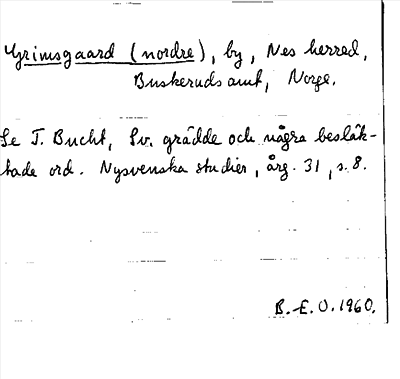 Grimsgaard (nordre), by, Nes herred,
Buskeruds amt, Norge.
Se T. Bucht, Sv. grädde och några besläk-
tade ord. Nysvenska studier, årg. 31, s. 8.
B.-E. O. 1960.